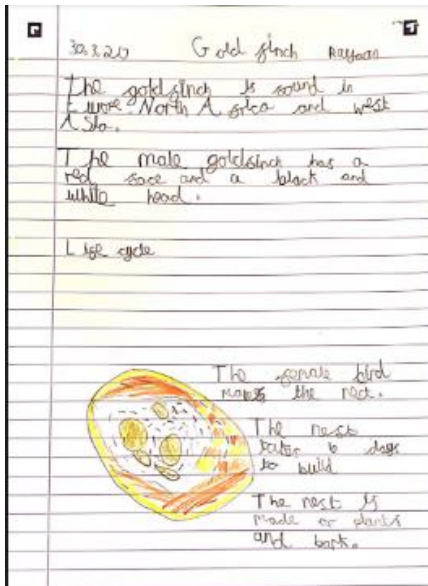 30.3.20 Goldfinch Rayaan
The goldfinch is found in
Europe North Africa and west
Asia.
The male goldfinch has a
red face and a black and
white head.
Life cycle
The female bird
makes the nest.
The nest
takes 6 days
to build
The nest is
made of plants
and bark.